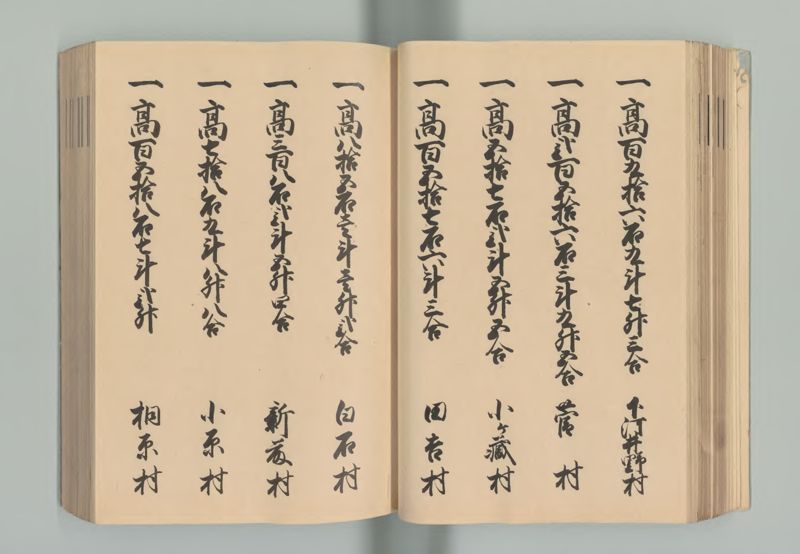 一高百九拾六石九斗七升三合 下河井野村
一高弐百五拾六石三斗九升五合 菅村
一高五拾七石弐斗五升五合 小ヶ蔵村
一高百五拾七石六斗三合 田吉村
一高八拾五石壱斗壱升弐合 白石村
一高三百八石弐斗五升四合 新村
一高七拾八石九斗八升八合 小原村
一高百五拾八石七斗弐升 桐原村